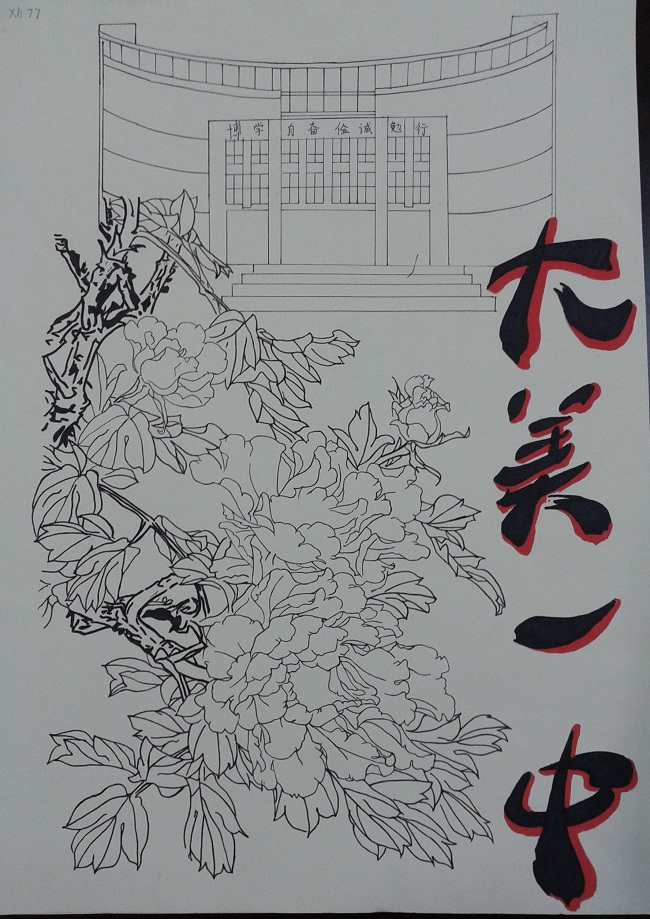 xh 77
博学 自奋 俭诚 勉行
大美一中